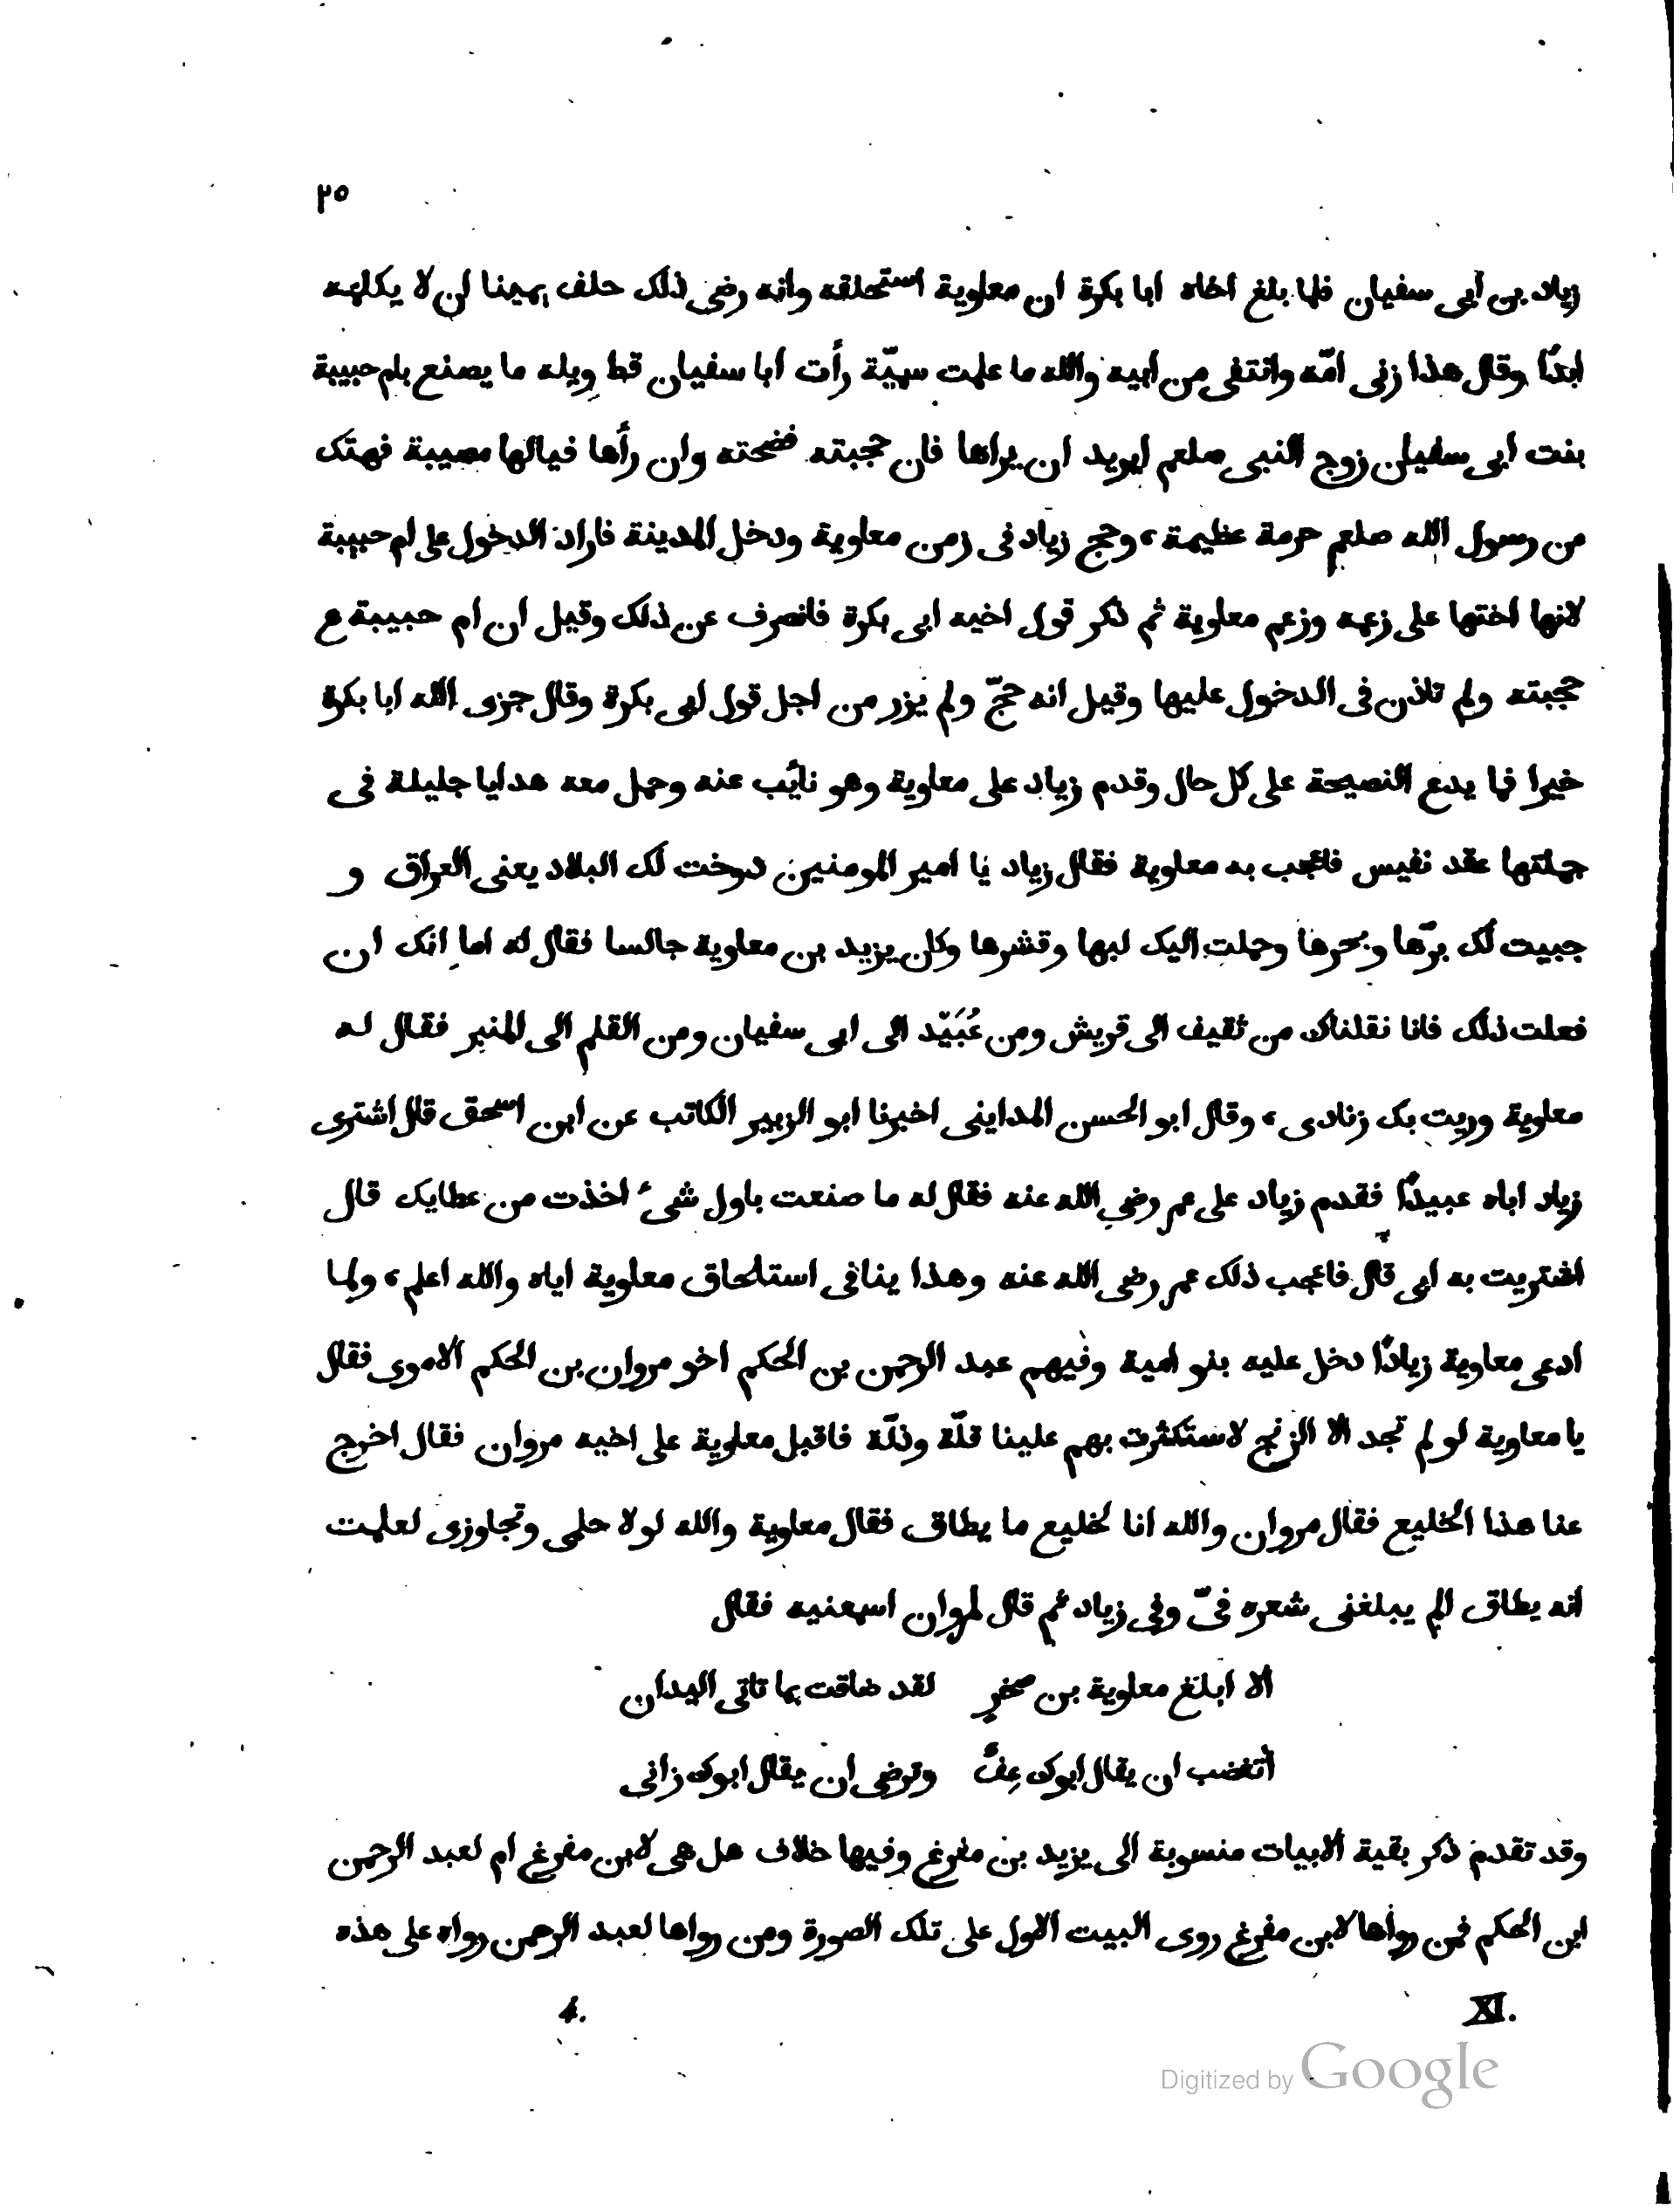 ٢٥
زياد بن أبى سفيان فلما بلغ اخاه ابا بكرة ان معاوية استحلقه وانه رضى ذلك حلف يمينا ان لا يكلمه
ابدًا وقال هذا زنى امّه وانتفى من ابيه والله ما علمت سميّة رأت ابا سفيان قط ويله ما يصنع بام حبيبة
بنت ابى سفيان زوج النبى صلعم ايريد ان يراها فان حجبته فضحته وان رأها فيالها مصيبة فهتك
من رسول الله صلعم حرمة عظيمة، وحج زياد فى زمن معاوية ودخل المدينة فاراد الدخول على ام حبيبة
لانها اختها على زعمه وزعم معاوية ثم ذكر قول اخيه ابى بكرة فانصرف عن ذلك وقيل ان ام حبيبة ع
حجبته ولم تاذن فى الدخول عليها وقيل انه حجّ ولم يزر من اجل قول ابى بكرة وقال جزى الله ابا بكرة
خيرا فما يدع النصيحة على كل حال وقدم زياد على معاوية وهو نايب عنه وحمل معه هدايا جليلة فى
جملتها عقد نفيس فاعجب به معاوية فقال زياد يا امير المومنين دوخت لك البلاد يعنى العراق و
جبيت لك برّها وبحرها وحملت اليك لبها وقشرها وكان يزيد بن معاوية جالسا فقال له اما انك ان
فعلت ذلك فانا نقلناك من ثقيف الى قريش ومن عُبَيّد الى ابى سفيان ومن القلم الى المنبر فقال له
معاوية وريت بك زنادى، وقال ابو الحسن المداينى اخبرنا ابو الزبير الكاتب عن ابن اسحق قال اشترى
زياد اباه عبيدًا فقدم زياد على عمر رضى الله عنه فقال له ما صنعت باول شىء اخذت من عطايك قال
اشتريت به ابى قال فاعجب ذلك عمر رضى الله عنه وهذا ينافى استلحاق معاوية اياه والله اعلم، ولما
ادعى معاوية زيادًا دخل عليه بنو امية وفيهم عبد الرحمن بن الحكم اخو مروان بن الحكم الاموى فقال
يا معاوية لو لم تجد الا الزنج لاستكثرت بهم علينا قلّة وذلّة فاقبل معاوية على اخيه مروان فقال اخرج
عنا هذا الخليع فقال مروان والله انا لخليع ما يطاق فقال معاوية والله لولا حلمى وتجاوزى لعلمت
انه يطاق الم يبلغنى شعره فىّ وفى زياد ثم قال لمروان اسمعنيه فقال
الا ابلغ معاوية بن صخرٍ لقد ضاقت بما تاتى اليدان
أتغضب ان يقال ابوك عِفٌّ وترضى ان يقال ابوك زانى
وقد تقدم ذكر بقية الابيات منسوبة الى يزيد بن مفرغ وفيها خلاف هل هى لابن مفرغ ام لعبد الرحمن
ابن الحكم فمن رواها لابن مفرغ روى البيت الاول على تلك الصورة ومن رواها لعبد الرحمن رواه على هذه
XI. 4.
Digitized by Google